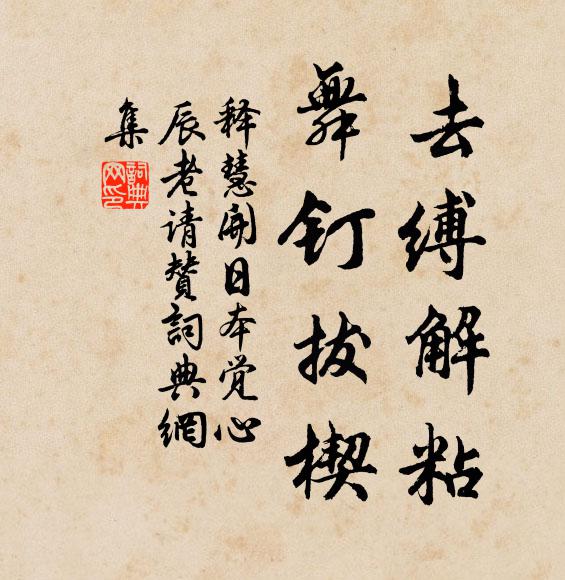 去缚解粘
舞钉拔楔
释慧開日本觉心
辰老请赞詞典網
集
詞典
网印